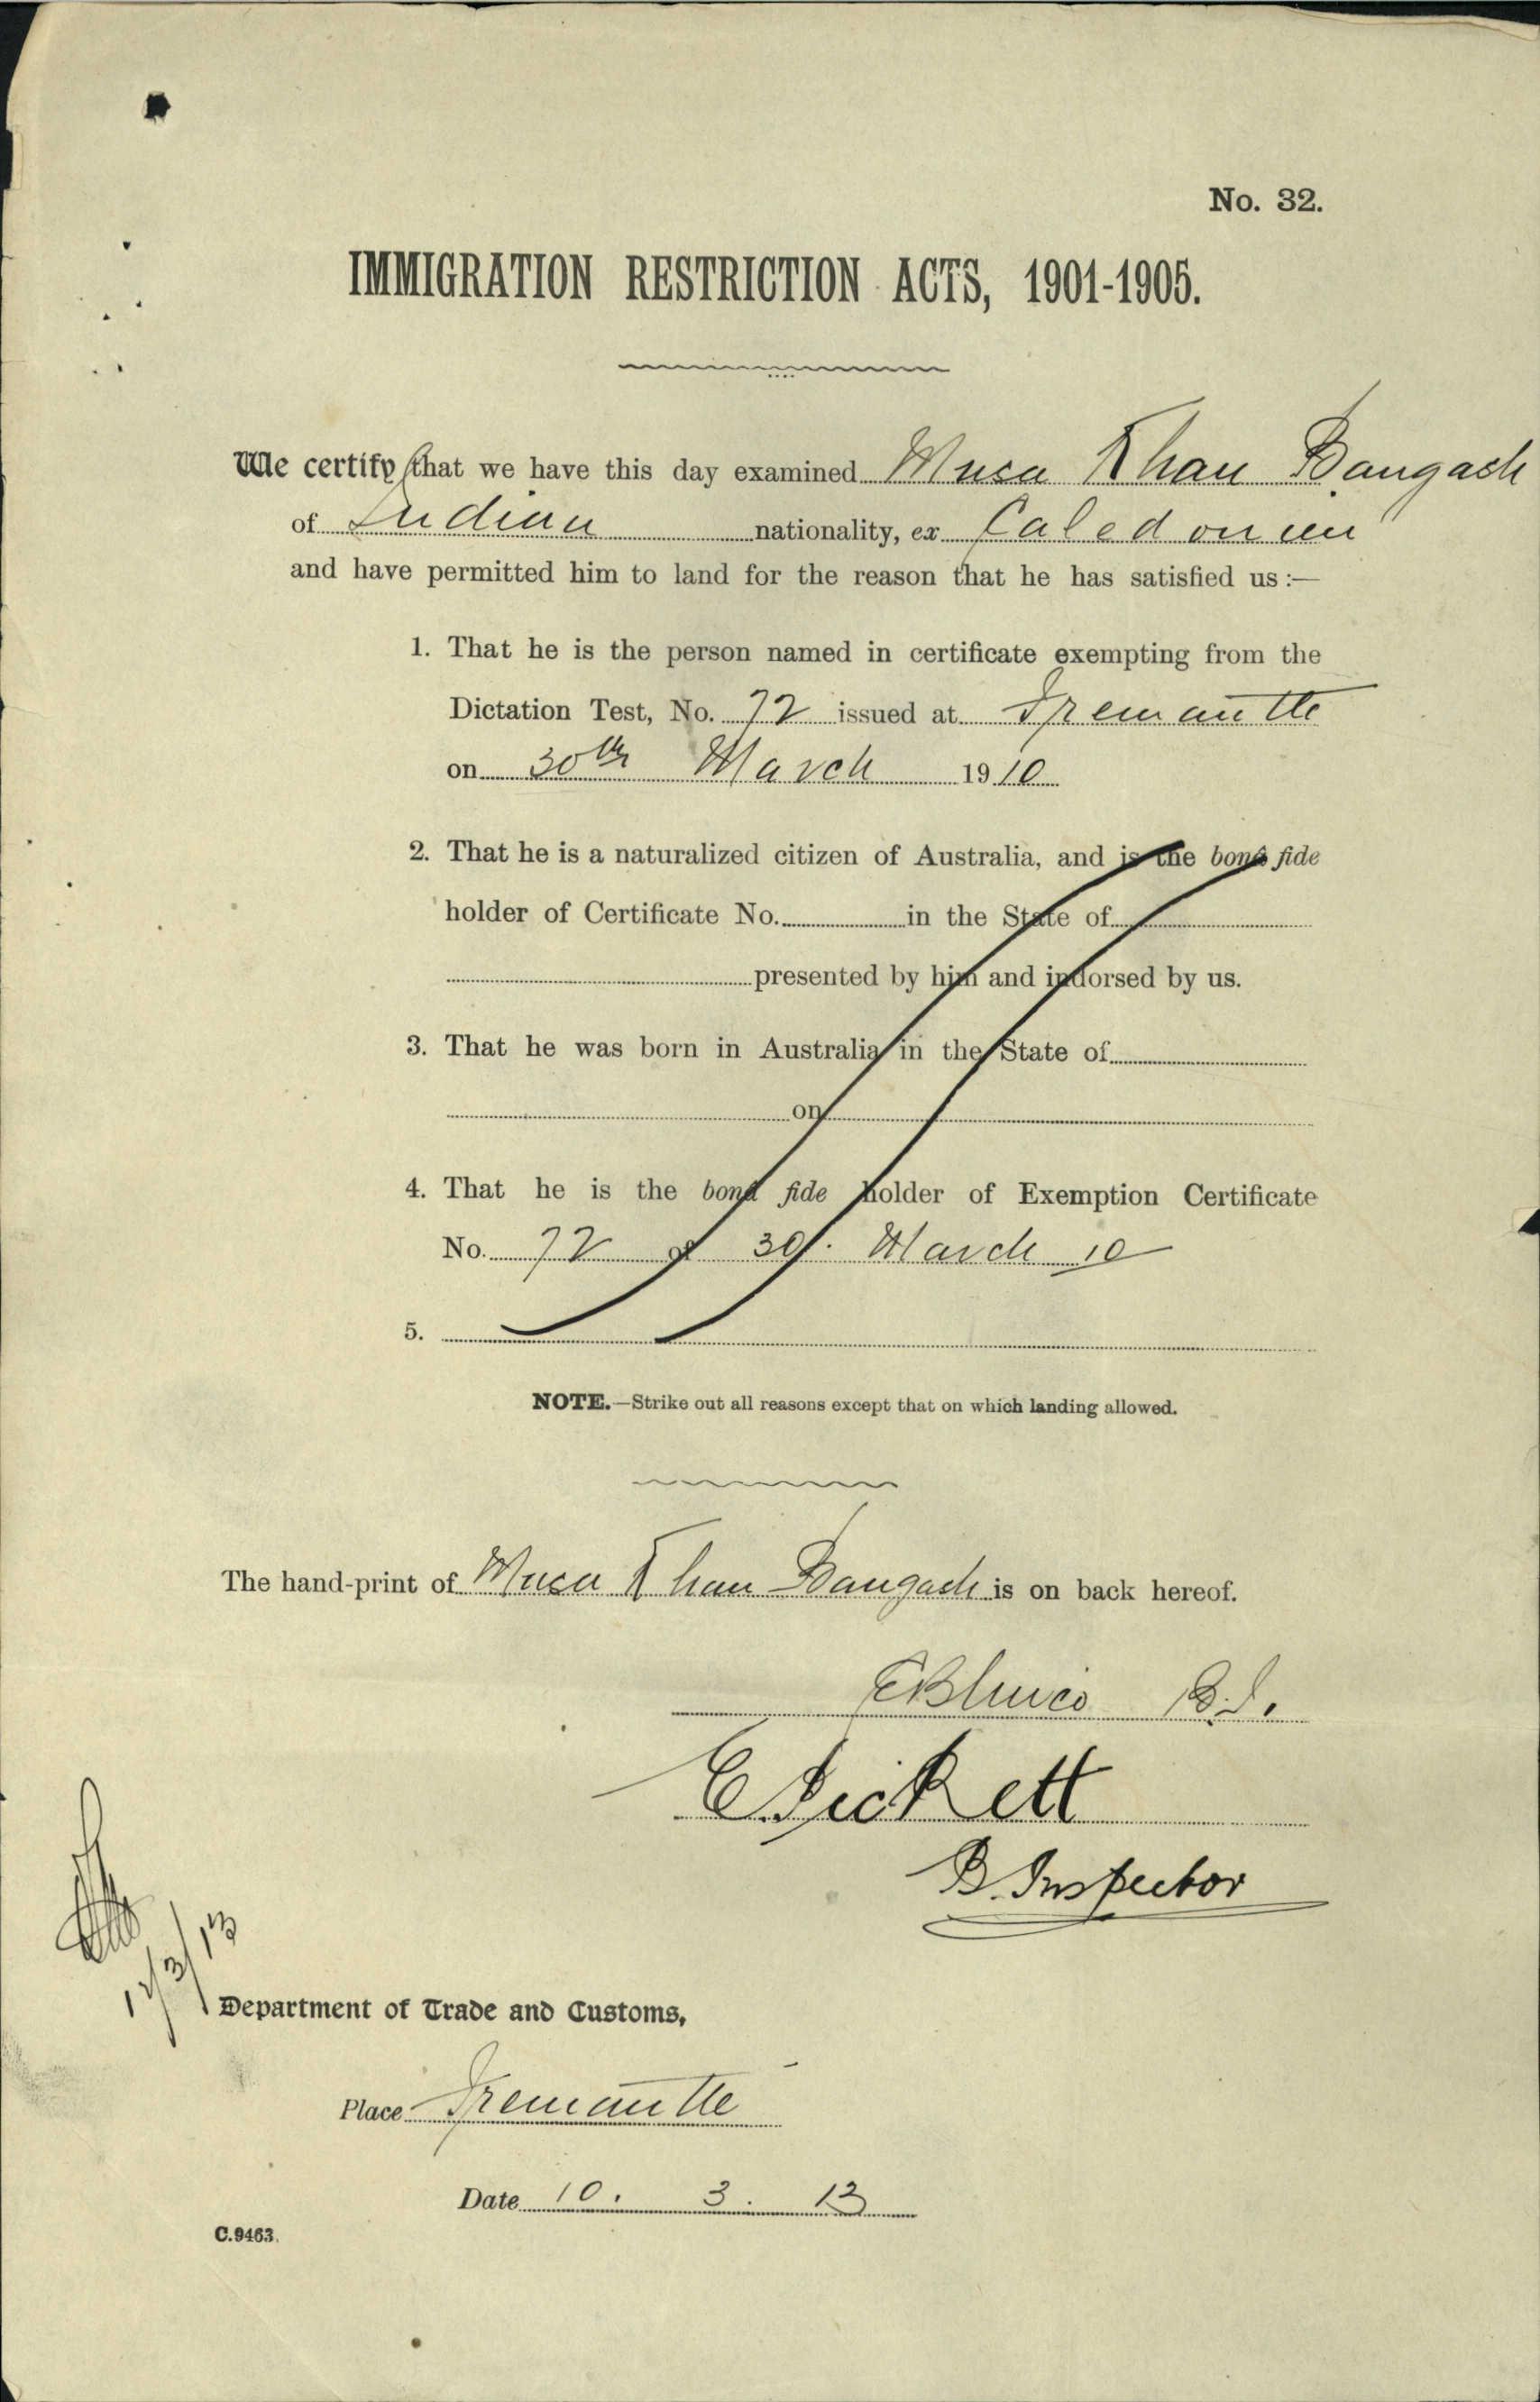 No. 32.
IMMIGRATION RESTRICTION ACTS, 1901-1905.
We certify that we have this day examined Musa Khan Bangash
of Indian nationality, ex Caledonien
and have permitted him to land for the reason that he has satisfied us :—
1. That he is the person named in certificate exempting from the
Dictation Test, No. 72 issued at Fremantle
on 30th March 1910
2. That he is a naturalized citizen of Australia, and is the bonâ fide
holder of Certificate No. in the State of
presented by him and indorsed by us.
3. That he was born in Australia in the State of
on
4. That he is the bonâ fide holder of Exemption Certificate
No. 72 of 30. March 10
5.
NOTE.—Strike out all reasons except that on which landing allowed.
The hand-print of Musa Khan Bangash is on back hereof.
B.I.
B. Inspector
/3/13
Department of Trade and Customs,
Place Fremantle
Date 10. 3. 13
C.9463.